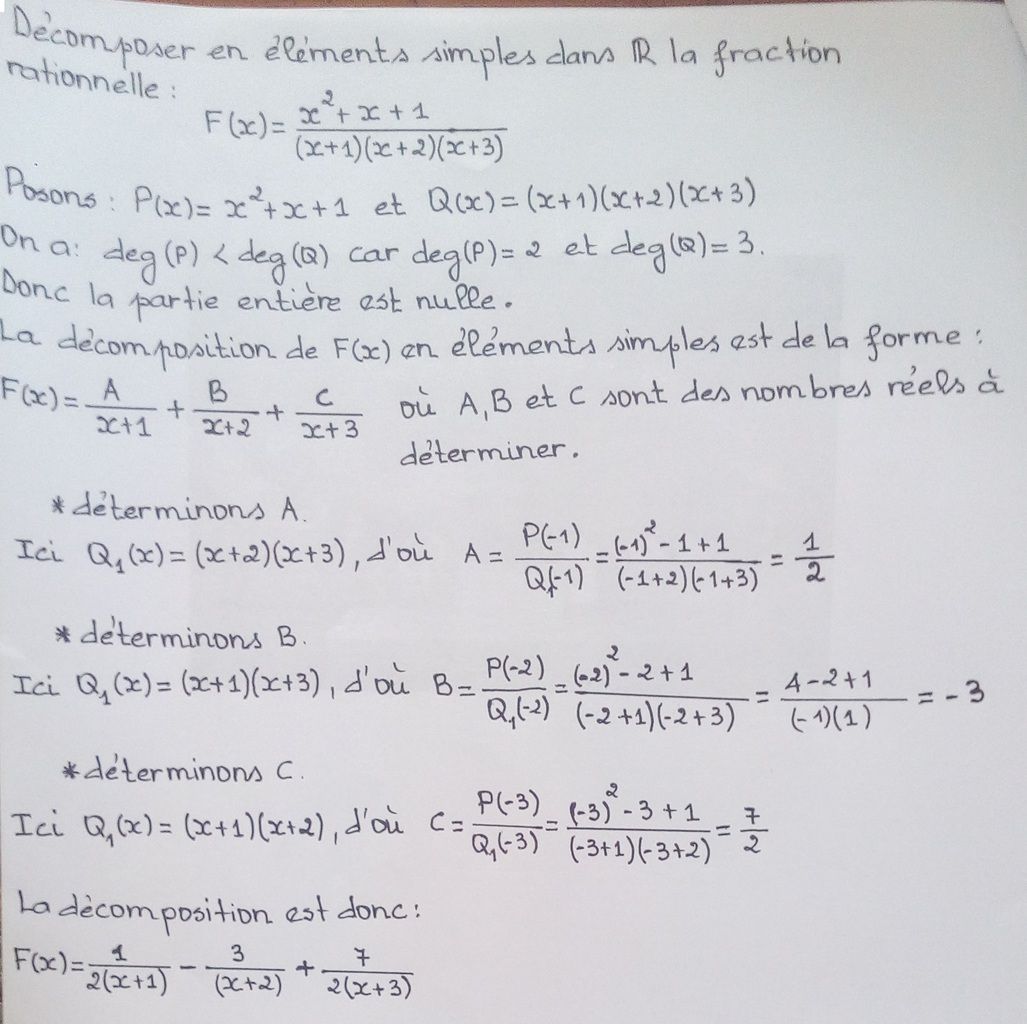 Décomposer en éléments simples dans ℝ la fraction
rationnelle :
F(x) = (x² + x + 1) / ((x+1)(x+2)(x+3))
Posons : P(x) = x² + x + 1 et Q(x) = (x+1)(x+2)(x+3)
On a : deg(P) < deg(Q) car deg(P) = 2 et deg(Q) = 3.
Donc la partie entière est nulle.
La décomposition de F(x) en éléments simples est de la forme :
F(x) = A/(x+1) + B/(x+2) + C/(x+3) où A, B et C sont des nombres réels à
déterminer.
* déterminons A.
Ici Q₁(x) = (x+2)(x+3), d'où A = P(-1)/Q₁(-1) = ((-1)² - 1 + 1)/((-1+2)(-1+3)) = 1/2
* déterminons B.
Ici Q₁(x) = (x+1)(x+3), d'où B = P(-2)/Q₁(-2) = ((-2)² - 2 + 1)/((-2+1)(-2+3)) = (4-2+1)/((-1)(1)) = -3
* déterminons C.
Ici Q₁(x) = (x+1)(x+2), d'où C = P(-3)/Q₁(-3) = ((-3)² - 3 + 1)/((-3+1)(-3+2)) = 7/2
La décomposition est donc :
F(x) = 1/(2(x+1)) - 3/((x+2)) + 7/(2(x+3))